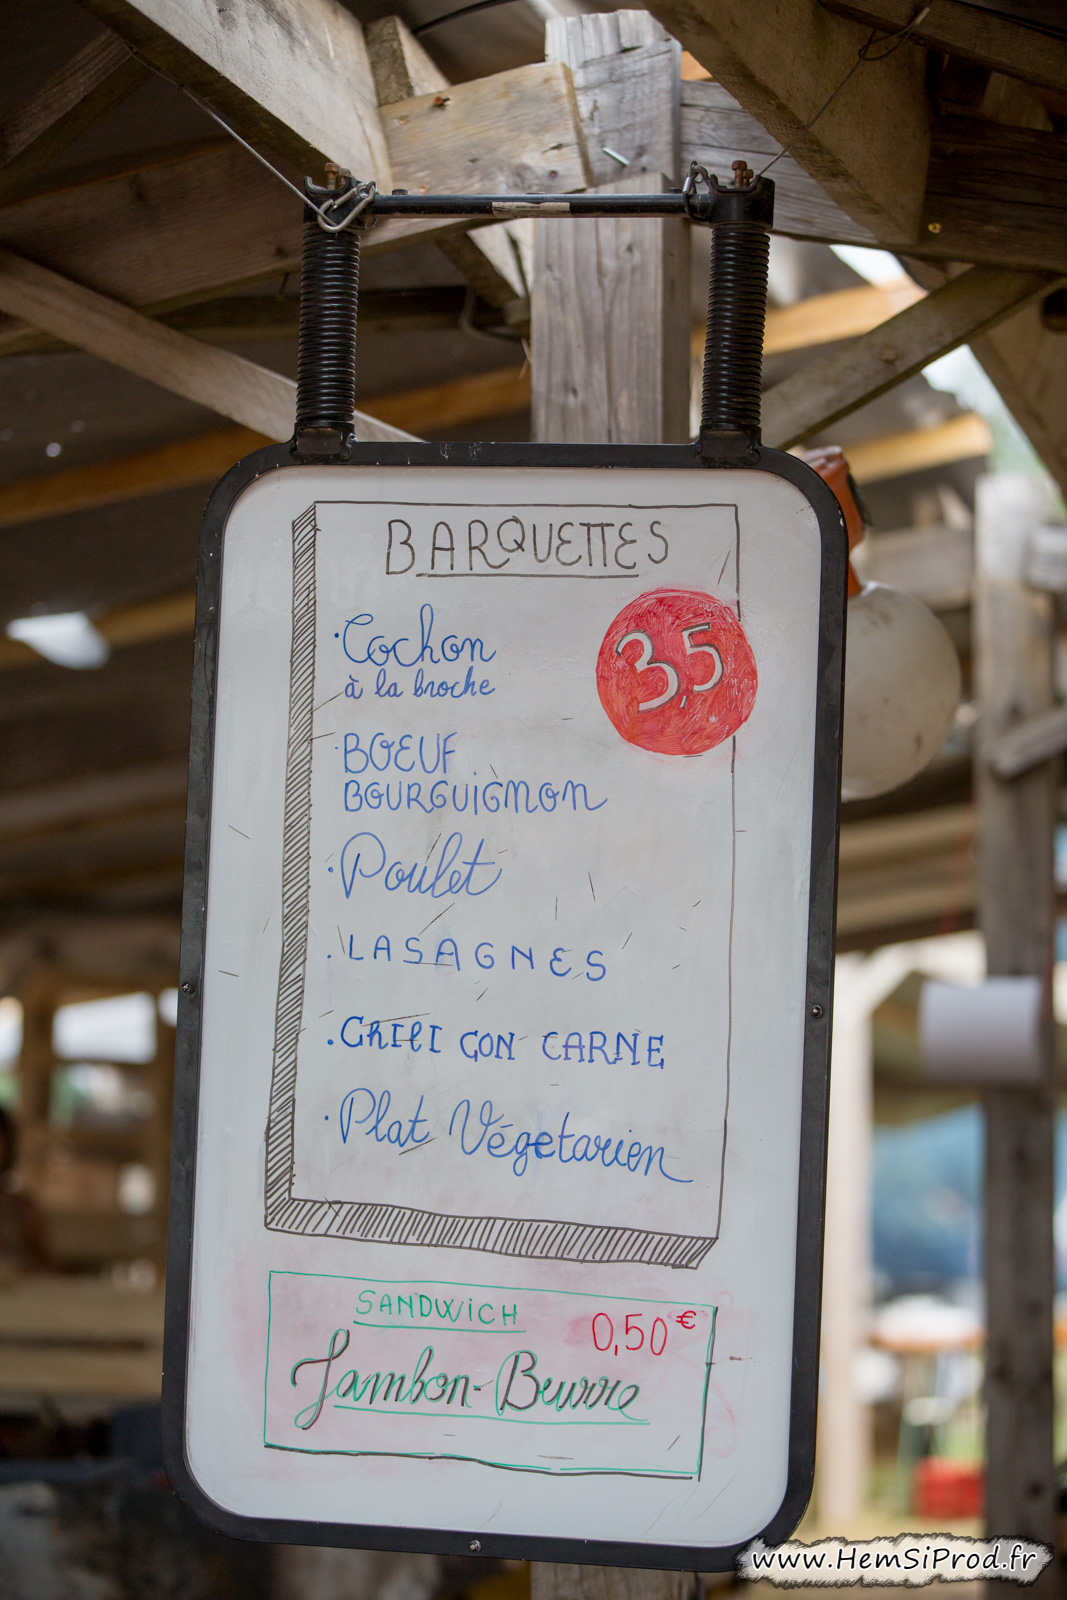 BARQUETTES
3,5
· Cochon
à la broche
· BOEUF
BOURGUIGNON
· Poulet
. LASAGNES
. CHILI CON CARNE
· Plat Végetarien
SANDWICH
0,50 €
Jambon-Beurre
www.HemSiProd.fr